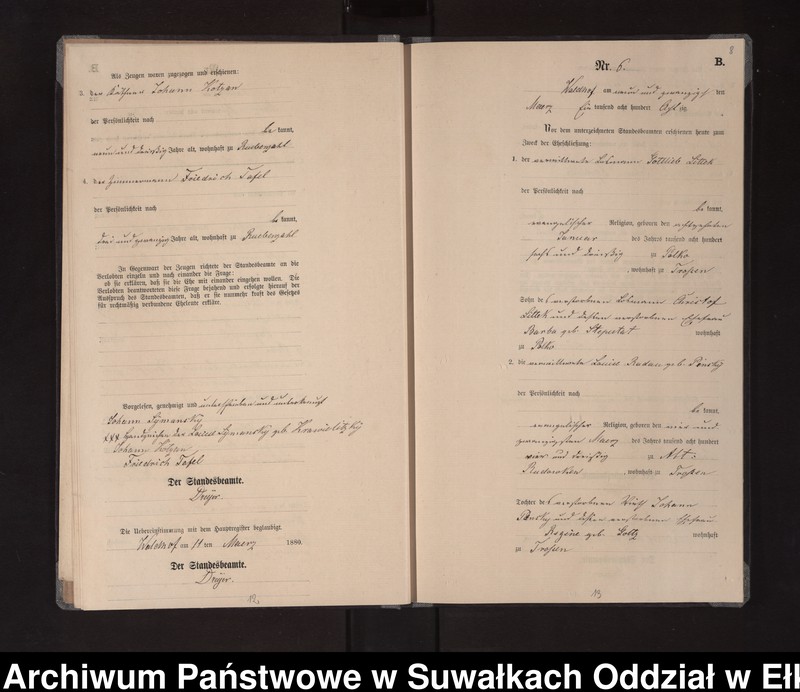 Als Zeugen waren zugezogen und erschienen:
3. der Käthner Johann Kotzan
der Persönlichkeit nach
be kannt,
neun und dreißig Jahre alt, wohnhaft zu Ruebezahl
4. der Zimmermann Friedrich Tafel
der Persönlichkeit nach
be kannt,
drei und zwanzig Jahre alt, wohnhaft zu Ruebezahl
In Gegenwart der Zeugen richtete der Standesbeamte an die
Verlobten einzeln und nach einander die Frage:
ob sie erklären, daß sie die Ehe mit einander eingehen wollen. Die
Verlobten beantworteten diese Frage bejahend und erfolgte hierauf der
Ausspruch des Standesbeamten, daß er sie nunmehr kraft des Gesetzes
für rechtmäßig verbundene Eheleute erkläre.
Vorgelesen, genehmigt und unterschrieben und
Johann Symanski
XXX Handzeichen der Symanski geb.
Johann Kotzan
Friedrich Tafel
Der Standesbeamte.
Dreyer.
Die Uebereinstimmung mit dem Hauptregister beglaubigt.
Waldhof am 11 ten Maerz 1880.
Der Standesbeamte.
Dreyer.
12,
8
Nr. 6. B.
Waldhof am neun und zwanzigst den
Maerz Ein tausend acht hundert Acht zig
Vor dem unterzeichneten Standesbeamten erschienen heute zum
Zweck der Eheschließung:
1. der verwittwete Losmann Gottlieb Littek
der Persönlichkeit nach
be kannt,
evangelischer Religion, geboren den achtzehnten
Januar des Jahres tausend acht hundert
sechs und dreißig zu
, wohnhaft zu Trossen
Sohn des verstorbenen Losmann Christof
Littek und dessen verstorbenen Ehefrau
Barba geb. wohnhaft
zu
2. die verwittwete Radan geb. Ponsky
der Persönlichkeit nach
be kannt,
evangelischer Religion, geboren den vier und
zwanzigsten Maerz des Jahres tausend acht hundert
vier und dreißig zu Alt-
, wohnhaft zu Trossen
Tochter des verstorbenen Wirth Johann
Ponsky und dessen verstorbene Ehefrau
Regine geb. Goltz wohnhaft
zu Trossen
13
Archiwum Państwowe w Suwałkach Oddział w Ełk